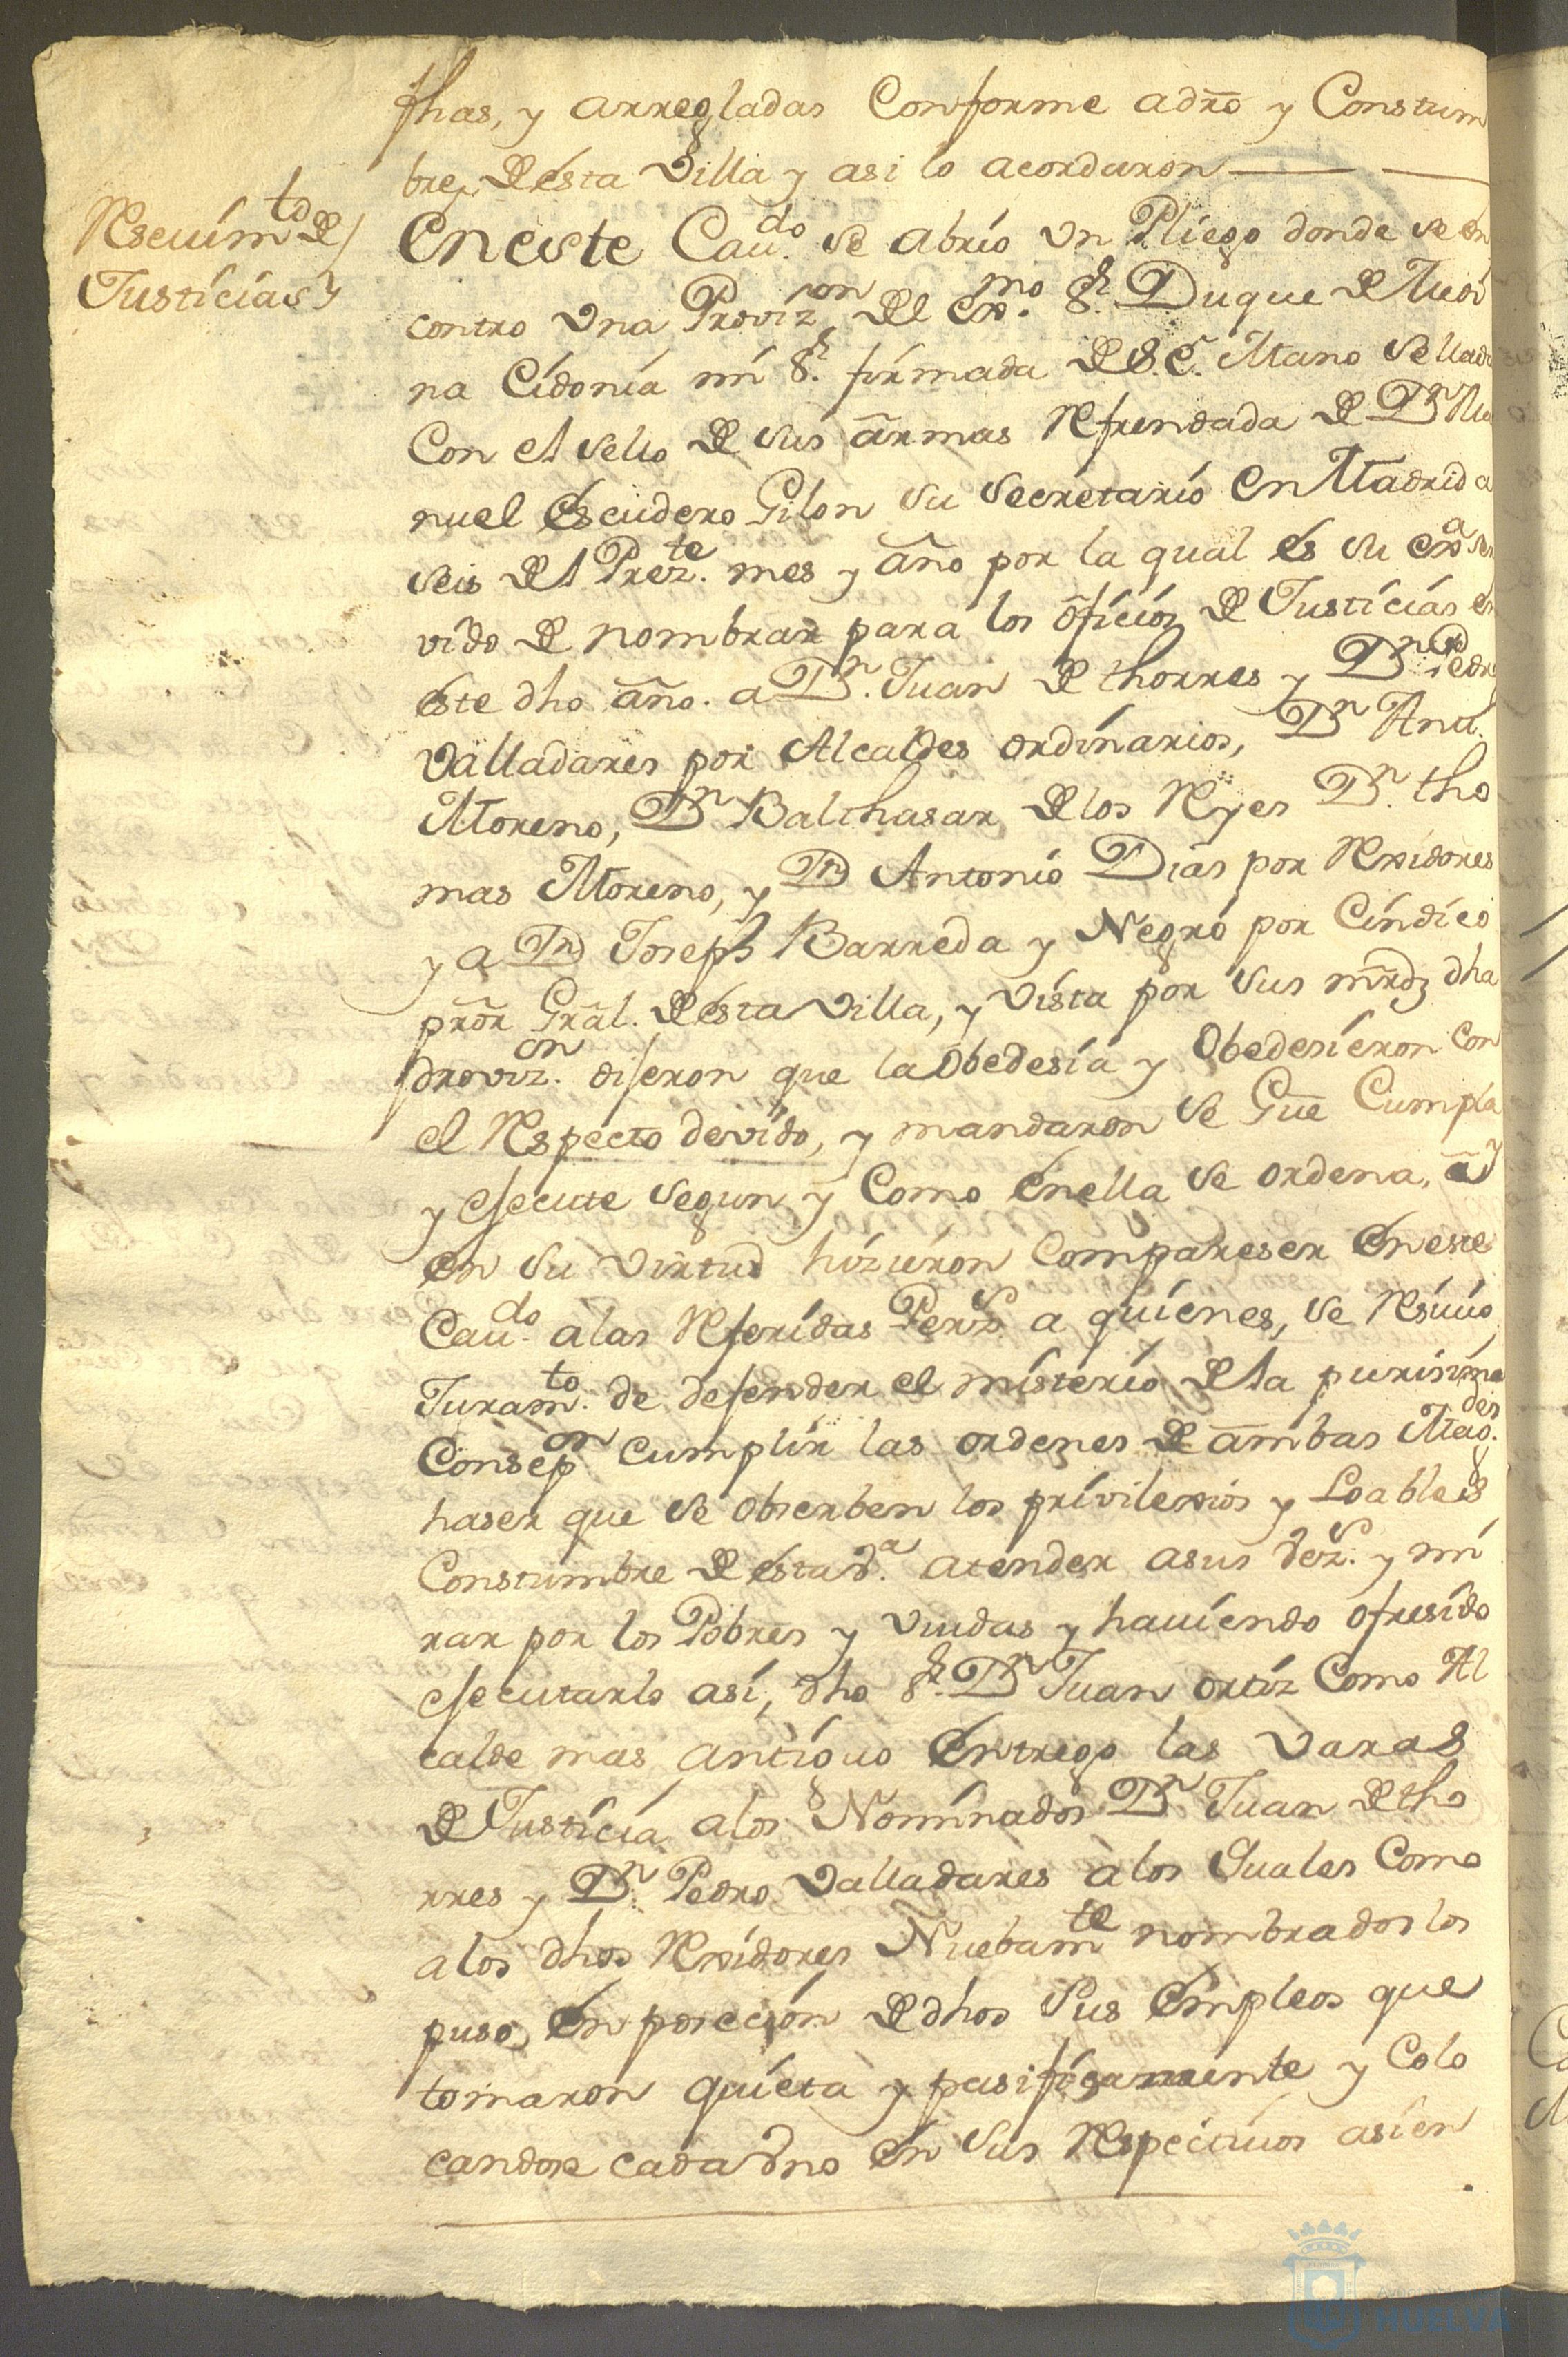 fhas, y arregladas Conforme adro y Constum
bre, de ésta Villa y asi lo acordaron
Reseuimto de
Justicias y
En este Caudo se abrio Vn Pliego donde se en
contro Vna Provizon del exmo Sr Duque de Medi
na Cidonia mi Sr firmada de S.E. Mano Sellada
Con el sello de sus armas Refrendada de Dn Ma
nuel escudero Gilon su secretario en Madrid a
seis del Prezte mes y año por la qual és su exa ser
vido de nombrar para los ofícios de Justicias en
este dho año. a Dn Juan de thorres y Dn Pedro
Valladares por Alcaldes ordinarios, Dn Anto
Moreno, Dn Balthasar de los Reyes Dn tho
mas Moreno, y Dn Antonio Dias por Rexidores
y a Dn Joseph Barreda y Negro por Cindico
pror Gral. de ésta Villa, y Vista por sus mrdz dha
provizon dijeron que la Obedesia y Obedesieron con
el Respecto devido, y mandaron se Gue Cumpla
y ejecute segun y Como en ella se ordena, ay
en su Virtud hizieron Compareser en este
Caudo a las Referidas Perzs a quienes, se Resiuio
Juramto de defender el misterio de la purisima
Consepon cumplir las ordenes de ambas Magdes
haser que se obserben los privilexios y Loables
Constumbre de ésta Va atender a sus vezs y mi
rar por los Pobres y Viudas y hauiendo ofresido
ejecutarlo así, dho Sr Dn Juan ortiz Como Al
calde mas antiguo éntrego las Varas
de Justicia a los Nominados Dn Juan de tho
rres y Dn Pedro Valladares à los Quales Como
a los dhos Rexidores Nuebamte nombrados los
puso, én poseción de dhos sus émpleos que
tomaron quieta y pasificamente y Colo
candose cada Vno en sus Respectiuos asien
HUELVA